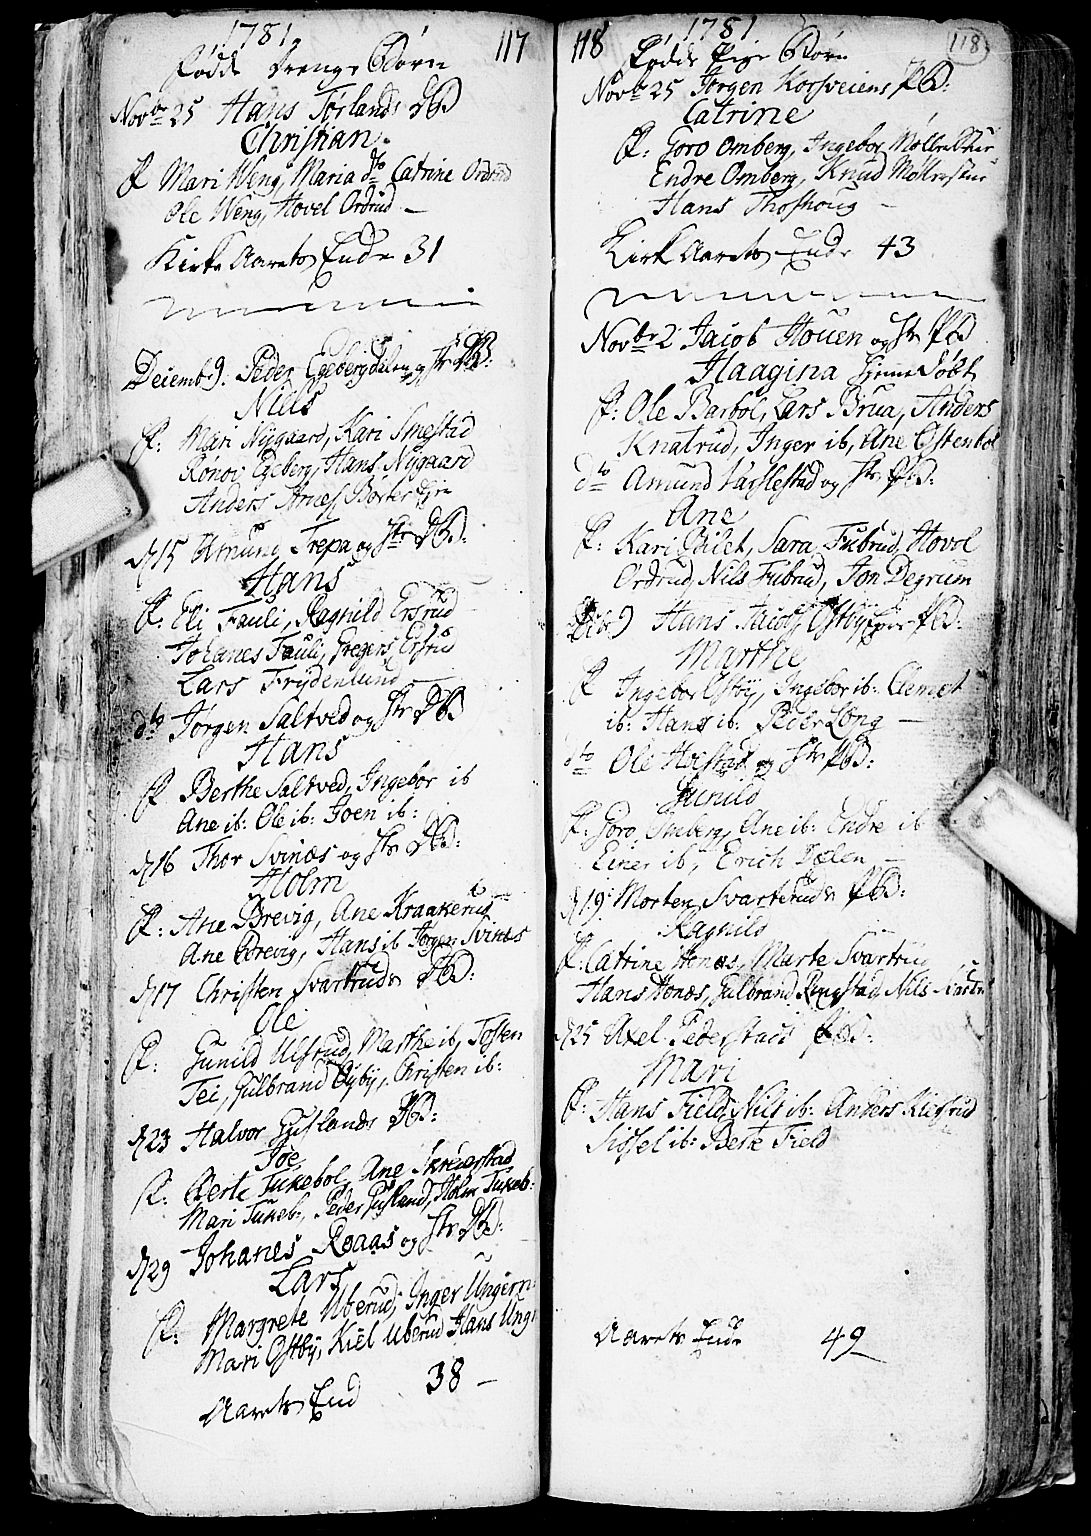 1781 117
Fødde Drenge Børn
Novbr 25 Hans Torlands PB
Christian
F Mari Weng, Maria dto Catrine Ordrud
Ole Weng, Hovel Ordrud –
Kirke Aarets Ende 31
Decemb 9. Peder Egebergdalen og Hr PB:
Niels
F: Mari Nygaard, Kari Smestad
Ronov Egeberg, Hans Nygaard
Anders
d 15 Amund Trepa og Hr PB:
Hans
F. Eli Fauli, Ragnild Ersrud
Johanes Fauli, Gregers Ersrud
Lars Frydenlund
dto Jørgen Saltved og Hr PB
Hans
F Berthe Saltved, Ingebor ib
Ane ib: Ole ib: Joen ib:
d 16 Thor Svinæs og Hr PB:
Holm
F: Ane Brevig, Ane Kraakerud
Ane Brevig, Hans ib Jørgen Svines
d 17 Christen Svartruds PB:
Ole
F: Gunild Ulfrud, Marthe ib, Tosten
Tei, Gulbrand Øyby, Christen ib:
d 23 Halvor Huslands PB:
Joe
F: Berte Tukebol, Ane Skreierstad
Mari Tukeb:, Peder Husland, Holm Tukeb:
d 29 Johanes Roaas og Hr PB:
Lars
F: Margrete Uberud, Inger Ungern:
Mari Østby, Kiel Uberud Hans Ung
Aarets End 38 –
118 1781 118
Fødde Pige Børn
Novbr 25 Jørgen Korsveiens PB:
Catrine
F: Goro Omberg, Ingebor
Endre Omberg, Knud
Hans Thoshoug –
Kirk Aarets Ende 43
Novbr 2 Jacob Houen og Hr PB
Haagina Hjeme Døbt
F: Ole Barbøl, Lars Brua, Anders
Knatrud, Inger ib, Ane Østenbøl
dto Amund Vaslestad og Hr PB:
Ane
F: Kari Bilet, Sara Fubrud, Hovel
Ordrud, Nils Fubrud, Jon Degrum
9 Hans Jacob Østby PB:
Marthe
F Ingebor Østby, Ingebor ib: Clemet
ib: Hans ib: PederLøng –
dto Ole Holstad og Hr PB:
Gunild
F: Goro Omberg, Ane ib: Endre ib
Einer ib, Erich Dælen –
d 19 Morten Svartruds PB:
Ragnild
F: Catrine Honæs, Marte Svartrud
Hans Honæs, Gulbrand Ringstad, Nils
d 25 Axel Pederstads PB:
Mari
F: Hans Field, Nils ib: Anders
Sissel ib: Berte Field
Aarets Ende 49